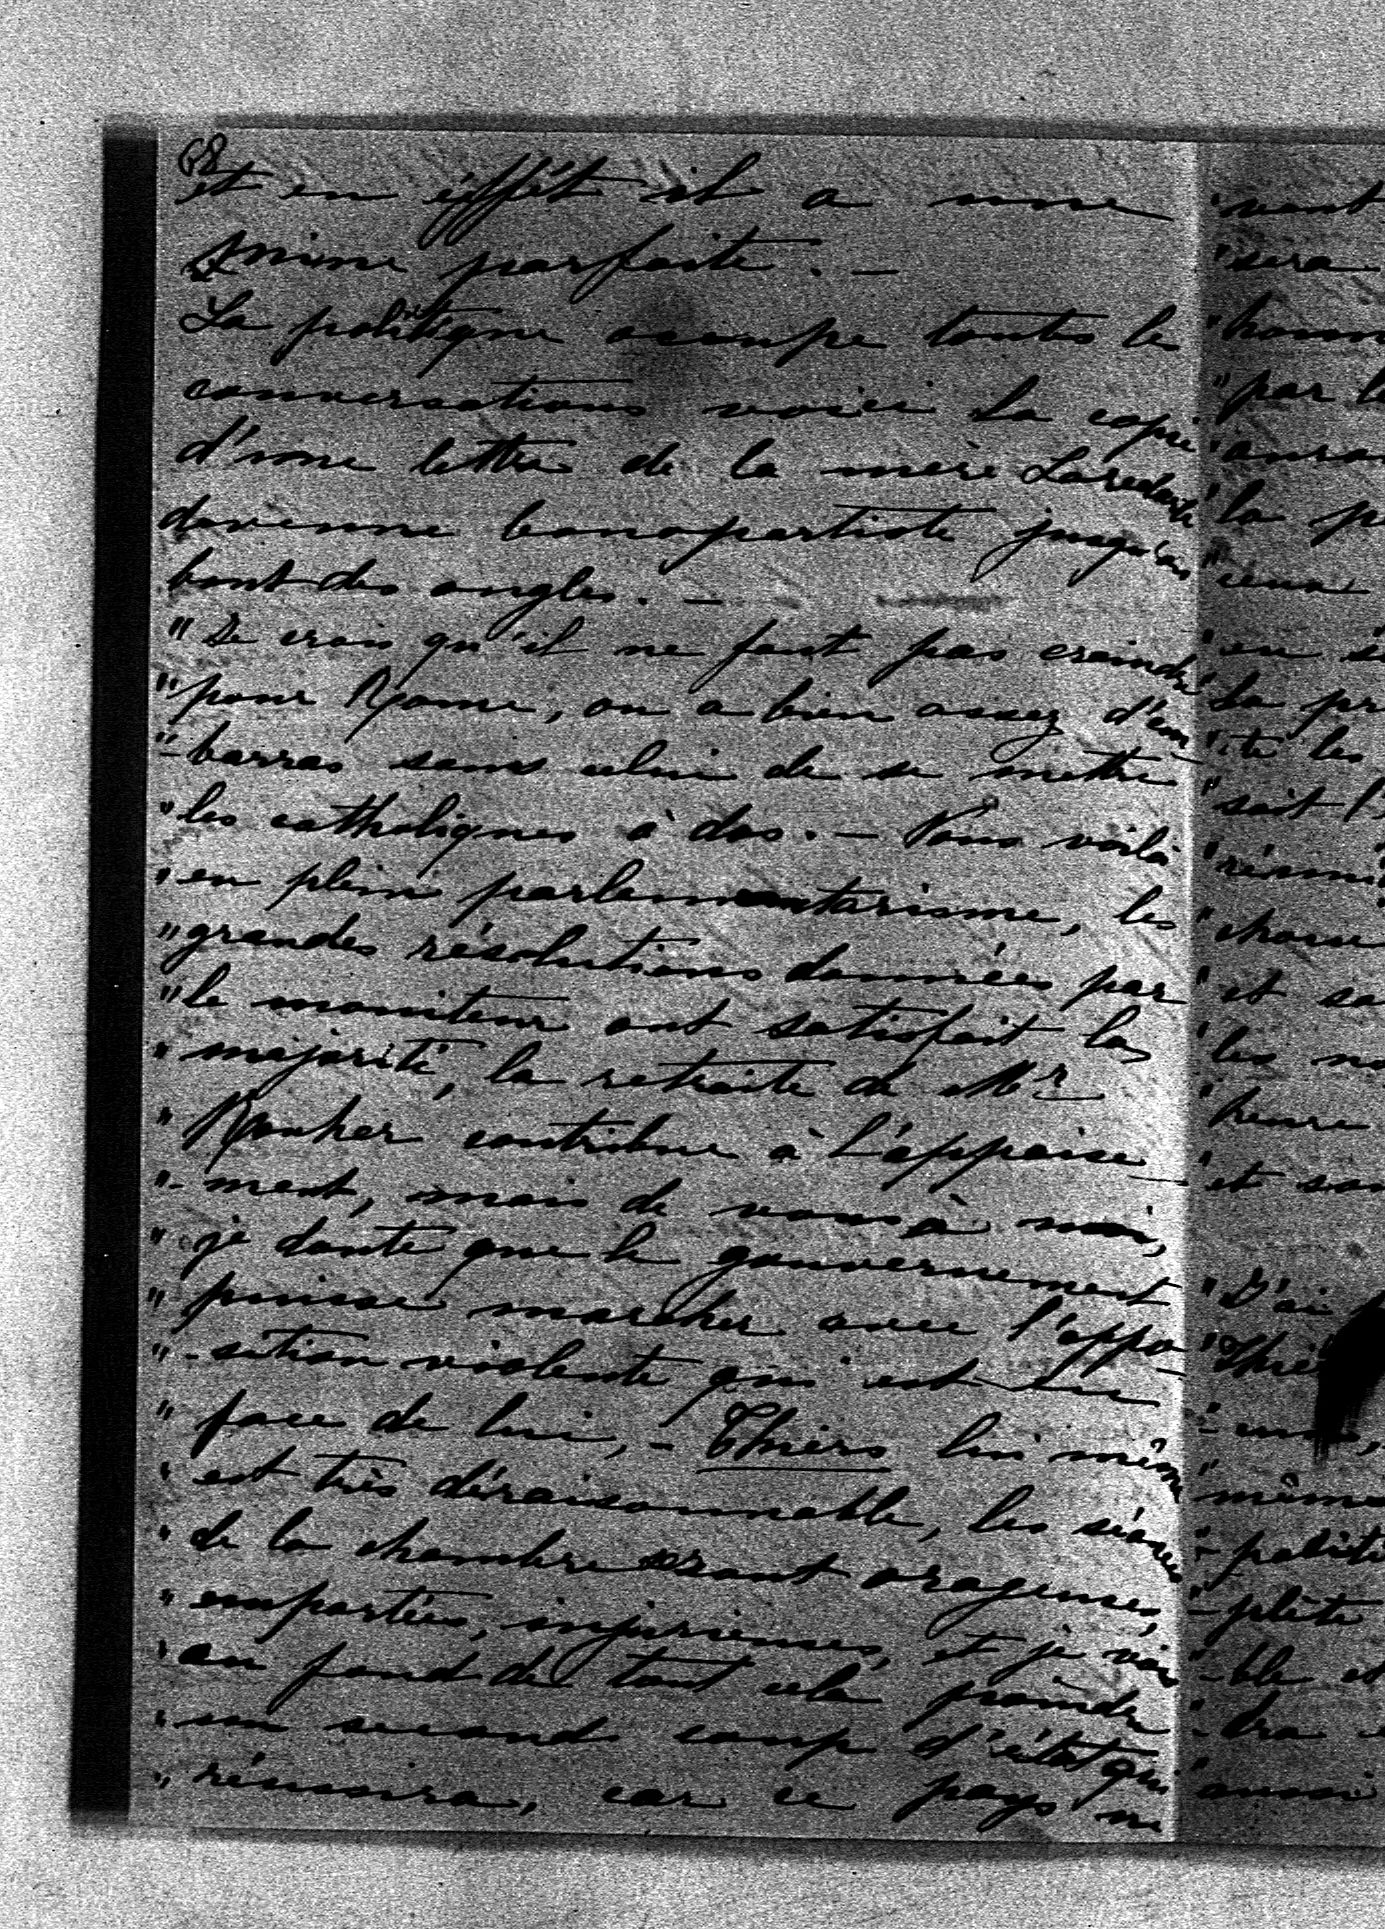 68
et en éffèt il a une
mine parfaite. —
La politique occupe toutes les
conversations voici la copie
d'une lettre de la mère
devenue bonapartiste jusqu'au
bout des ongles. —
" Je crois qu'il ne faut pas craindre
" pour Rome, on a bien assez d'em
"-barras sans celui de se mettre
" les catholiques à dos. — Vous voilà
" en plein parlementarisme, les
" grandes résolutions données par
" le moniteur ont satisfait la
" majorité, la retraite de Mr
" Rouher contribue à l'appaise-
"-ment, mais de vous à moi,
" je doute que le gouvernement
" puisse marcher avec l'oppo-
"-sition violente qui est en
" face de lui, — Thiers lui même
" est très déraisonnable, les séances
" de la chambre sont orageuses,
" emportées, injurieuses, et je vois
" au fond de tout cela poindre
" un second coup d'état qui
" réussira, car ce pays ne
" vont
" sera
" par le
" la p
" ceux
" en
" La pr
" te les
" soit
" et sa
" les no
" heure
" et san
" J'ai
" même
" aussi